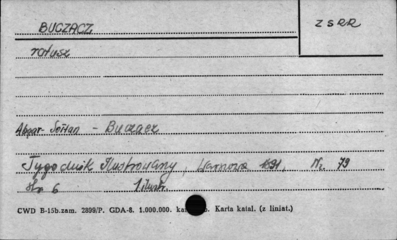 BUCZACZ
ZSRR
ratusz
Abgar-Sołtan - Buczacz
Tygodnik Ilustrowany, 1891, Nr 79
str 6 1 ilustr.
CWD B-15b.zam. 2899/P. GDA-8. 1.000.000. Karta katal. (z liniat.)